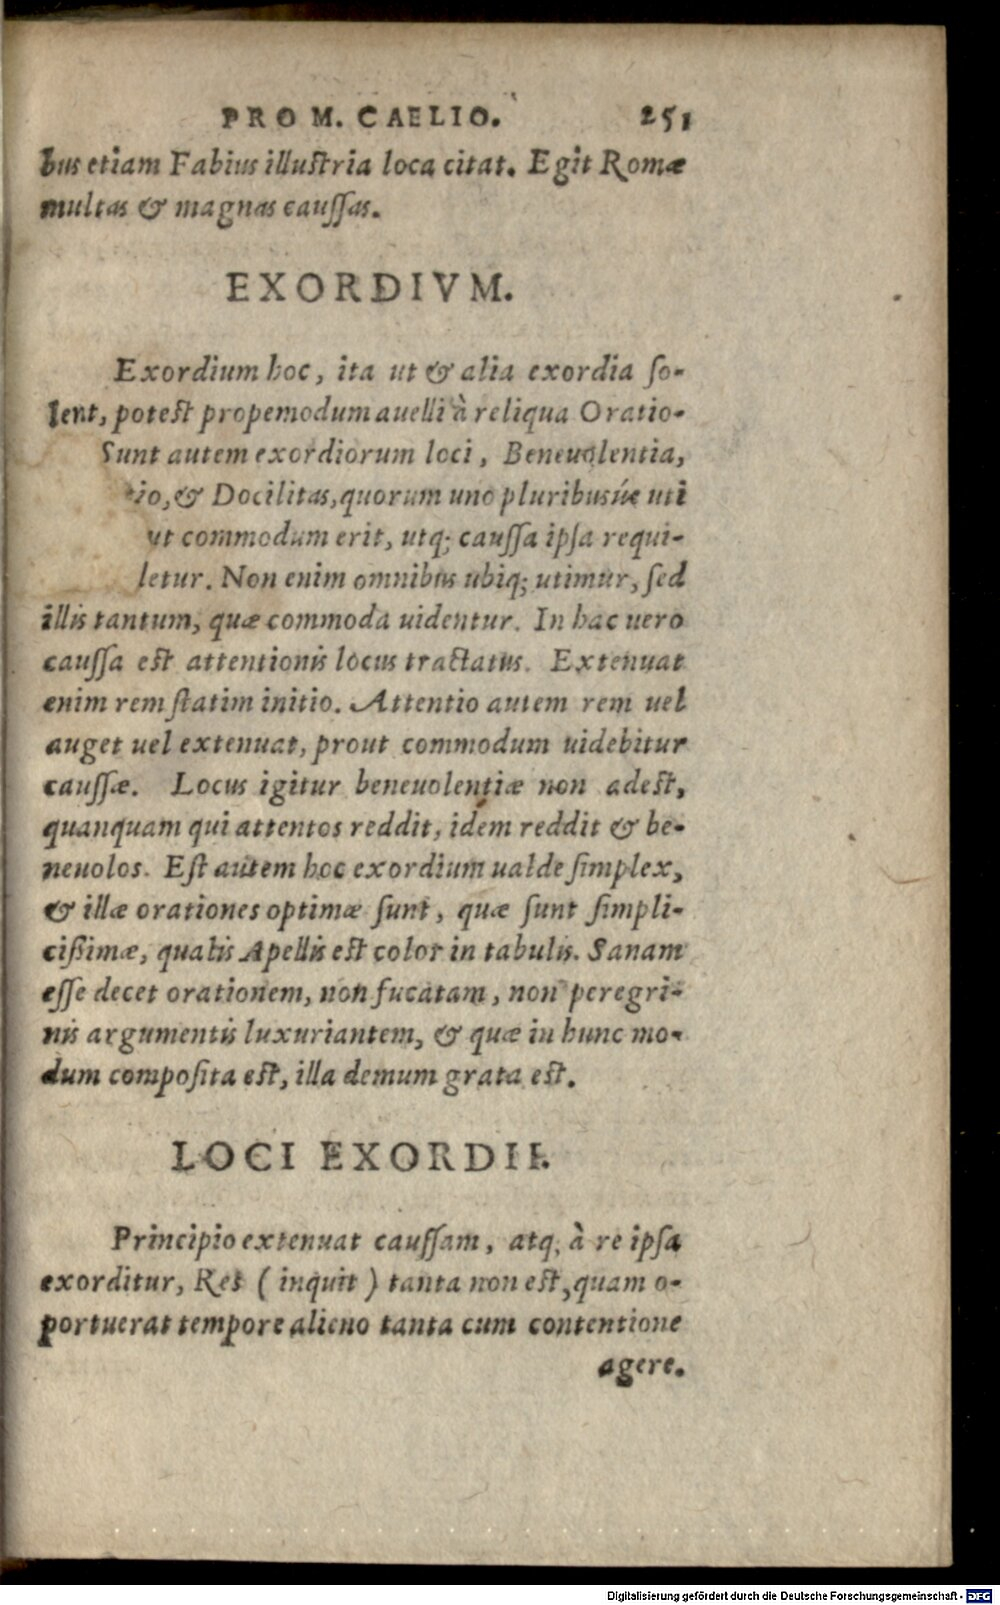 PRO M. CAELIO. 251
bus etiam Fabius illuſtria loca citat. Egit Romæ
multas & magnas cauſſas.
EXORDIVM.
Exordium hoc, ita ut & alia exordia ſo-
lent, poteſt propemodum auelli à reliqua Oratio-
Sunt autem exordiorum loci, Beneuolentia,
io, & Docilitas, quorum uno pluribusúe uti
ut commodum erit, utq; cauſſa ipſa requi-
letur. Non enim omnibus ubiq; utimur, ſed
illis tantum, quæ commoda uidentur. In hac uero
cauſſa eſt attentionis locus tractatus. Extenuat
enim rem ſtatim initio. Attentio autem rem uel
auget uel extenuat, prout commodum uidebitur
cauſſæ. Locus igitur beneuolentiæ non adeſt,
quanquam qui attentos reddit, idem reddit & be-
neuolos. Eſt autem hoc exordium ualde ſimplex,
& illæ orationes optimæ ſunt, quæ ſunt ſimpli-
cißimæ, qualis Apellis eſt color in tabulis. Sanam
eſſe decet orationem, non fucatam, non peregri-
nis argumentis luxuriantem, & quæ in hunc mo-
dum compoſita eſt, illa demum grata eſt.
LOCI EXORDII.
Principio extenuat cauſſam, atq; à re ipſa
exorditur, Res ( inquit ) tanta non eſt, quam o-
portuerat tempore alieno tanta cum contentione
agere.
Digitalisierung gefördert durch die Deutsche Forschungsgemeinschaft - DFG